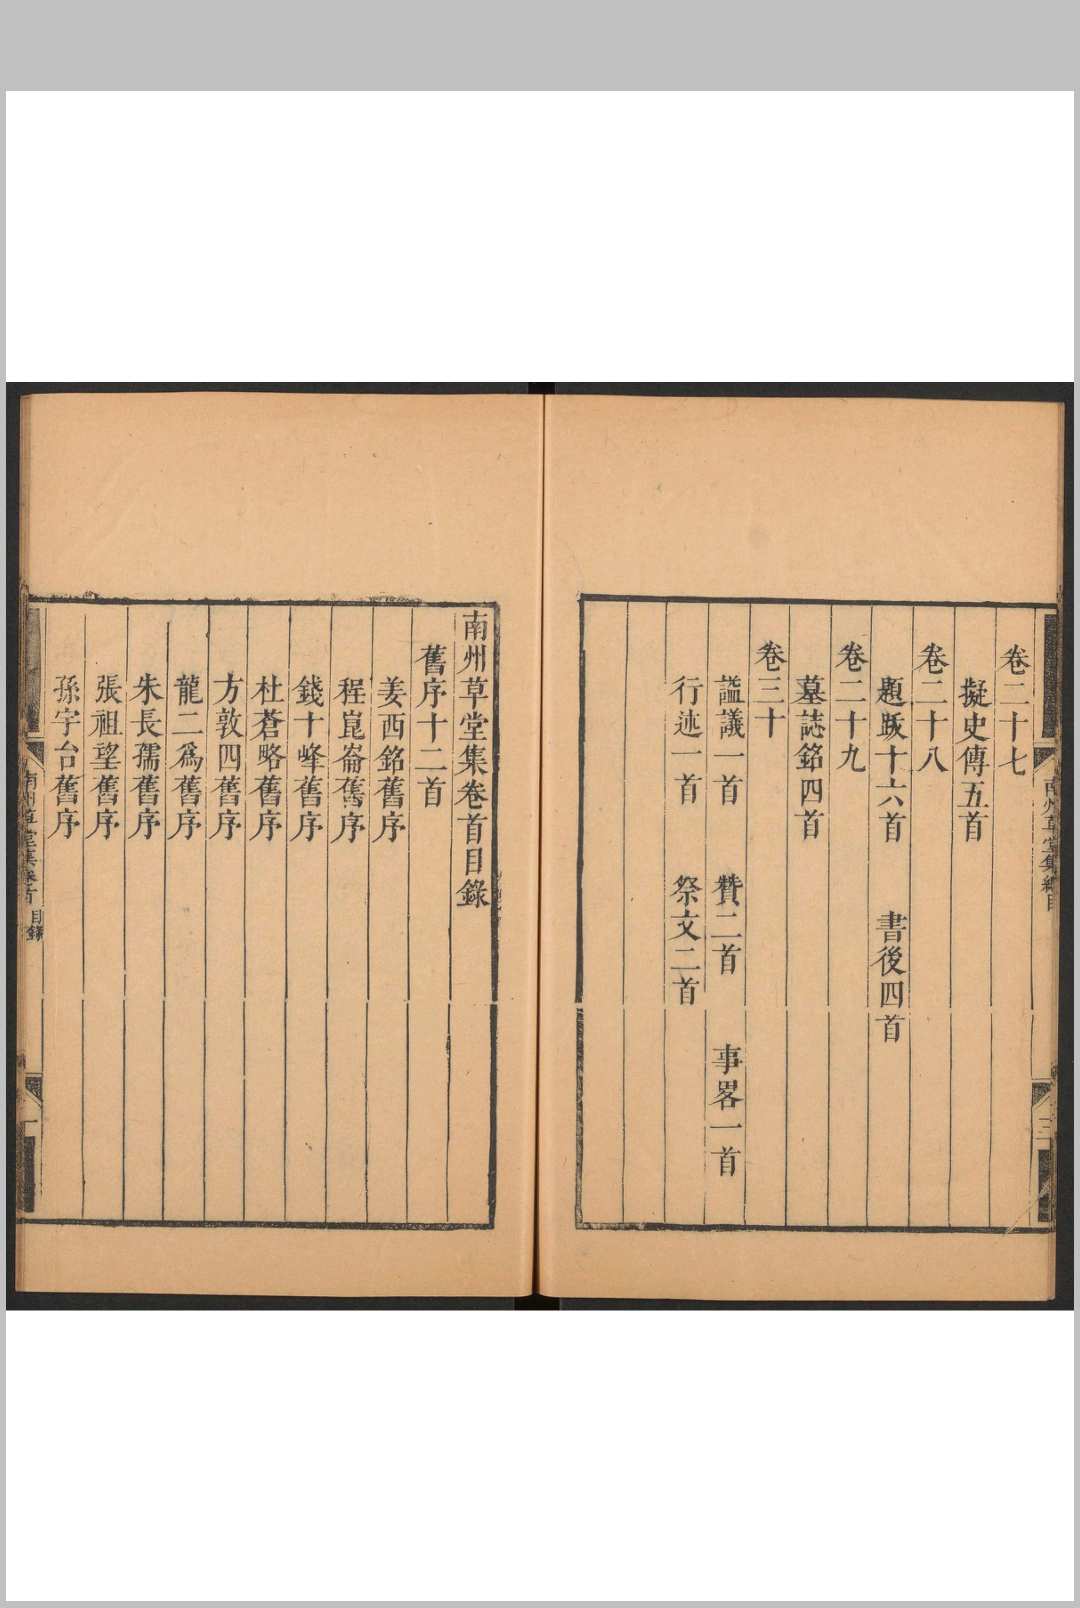 卷二十七
擬史傳五首
卷二十八
題跋十六首　書後四首
卷二十九
墓誌銘四首
卷三十
謚議一首　贊二首　事畧一首
行述一首　祭文二首
南州草堂集總目
三
南州草堂集卷首目錄
舊序十二首
姜西銘舊序
程崑崙舊序
錢十峰舊序
杜蒼略舊序
方敦四舊序
龍二爲舊序
朱長孺舊序
張祖望舊序
孫宇台舊序
南州草堂集卷首 目錄
一